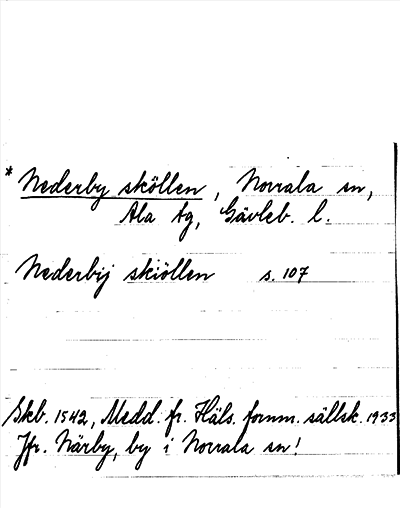 * Nederby sköllen, Norrala sn,
Ala tg, Gävleb. l.
Nederbij skiöllen s. 107
Skb. 1542, Medd. fr. Häls. fornm. sällsk. 1933
Jfr. Närby, by i Norrala sn!